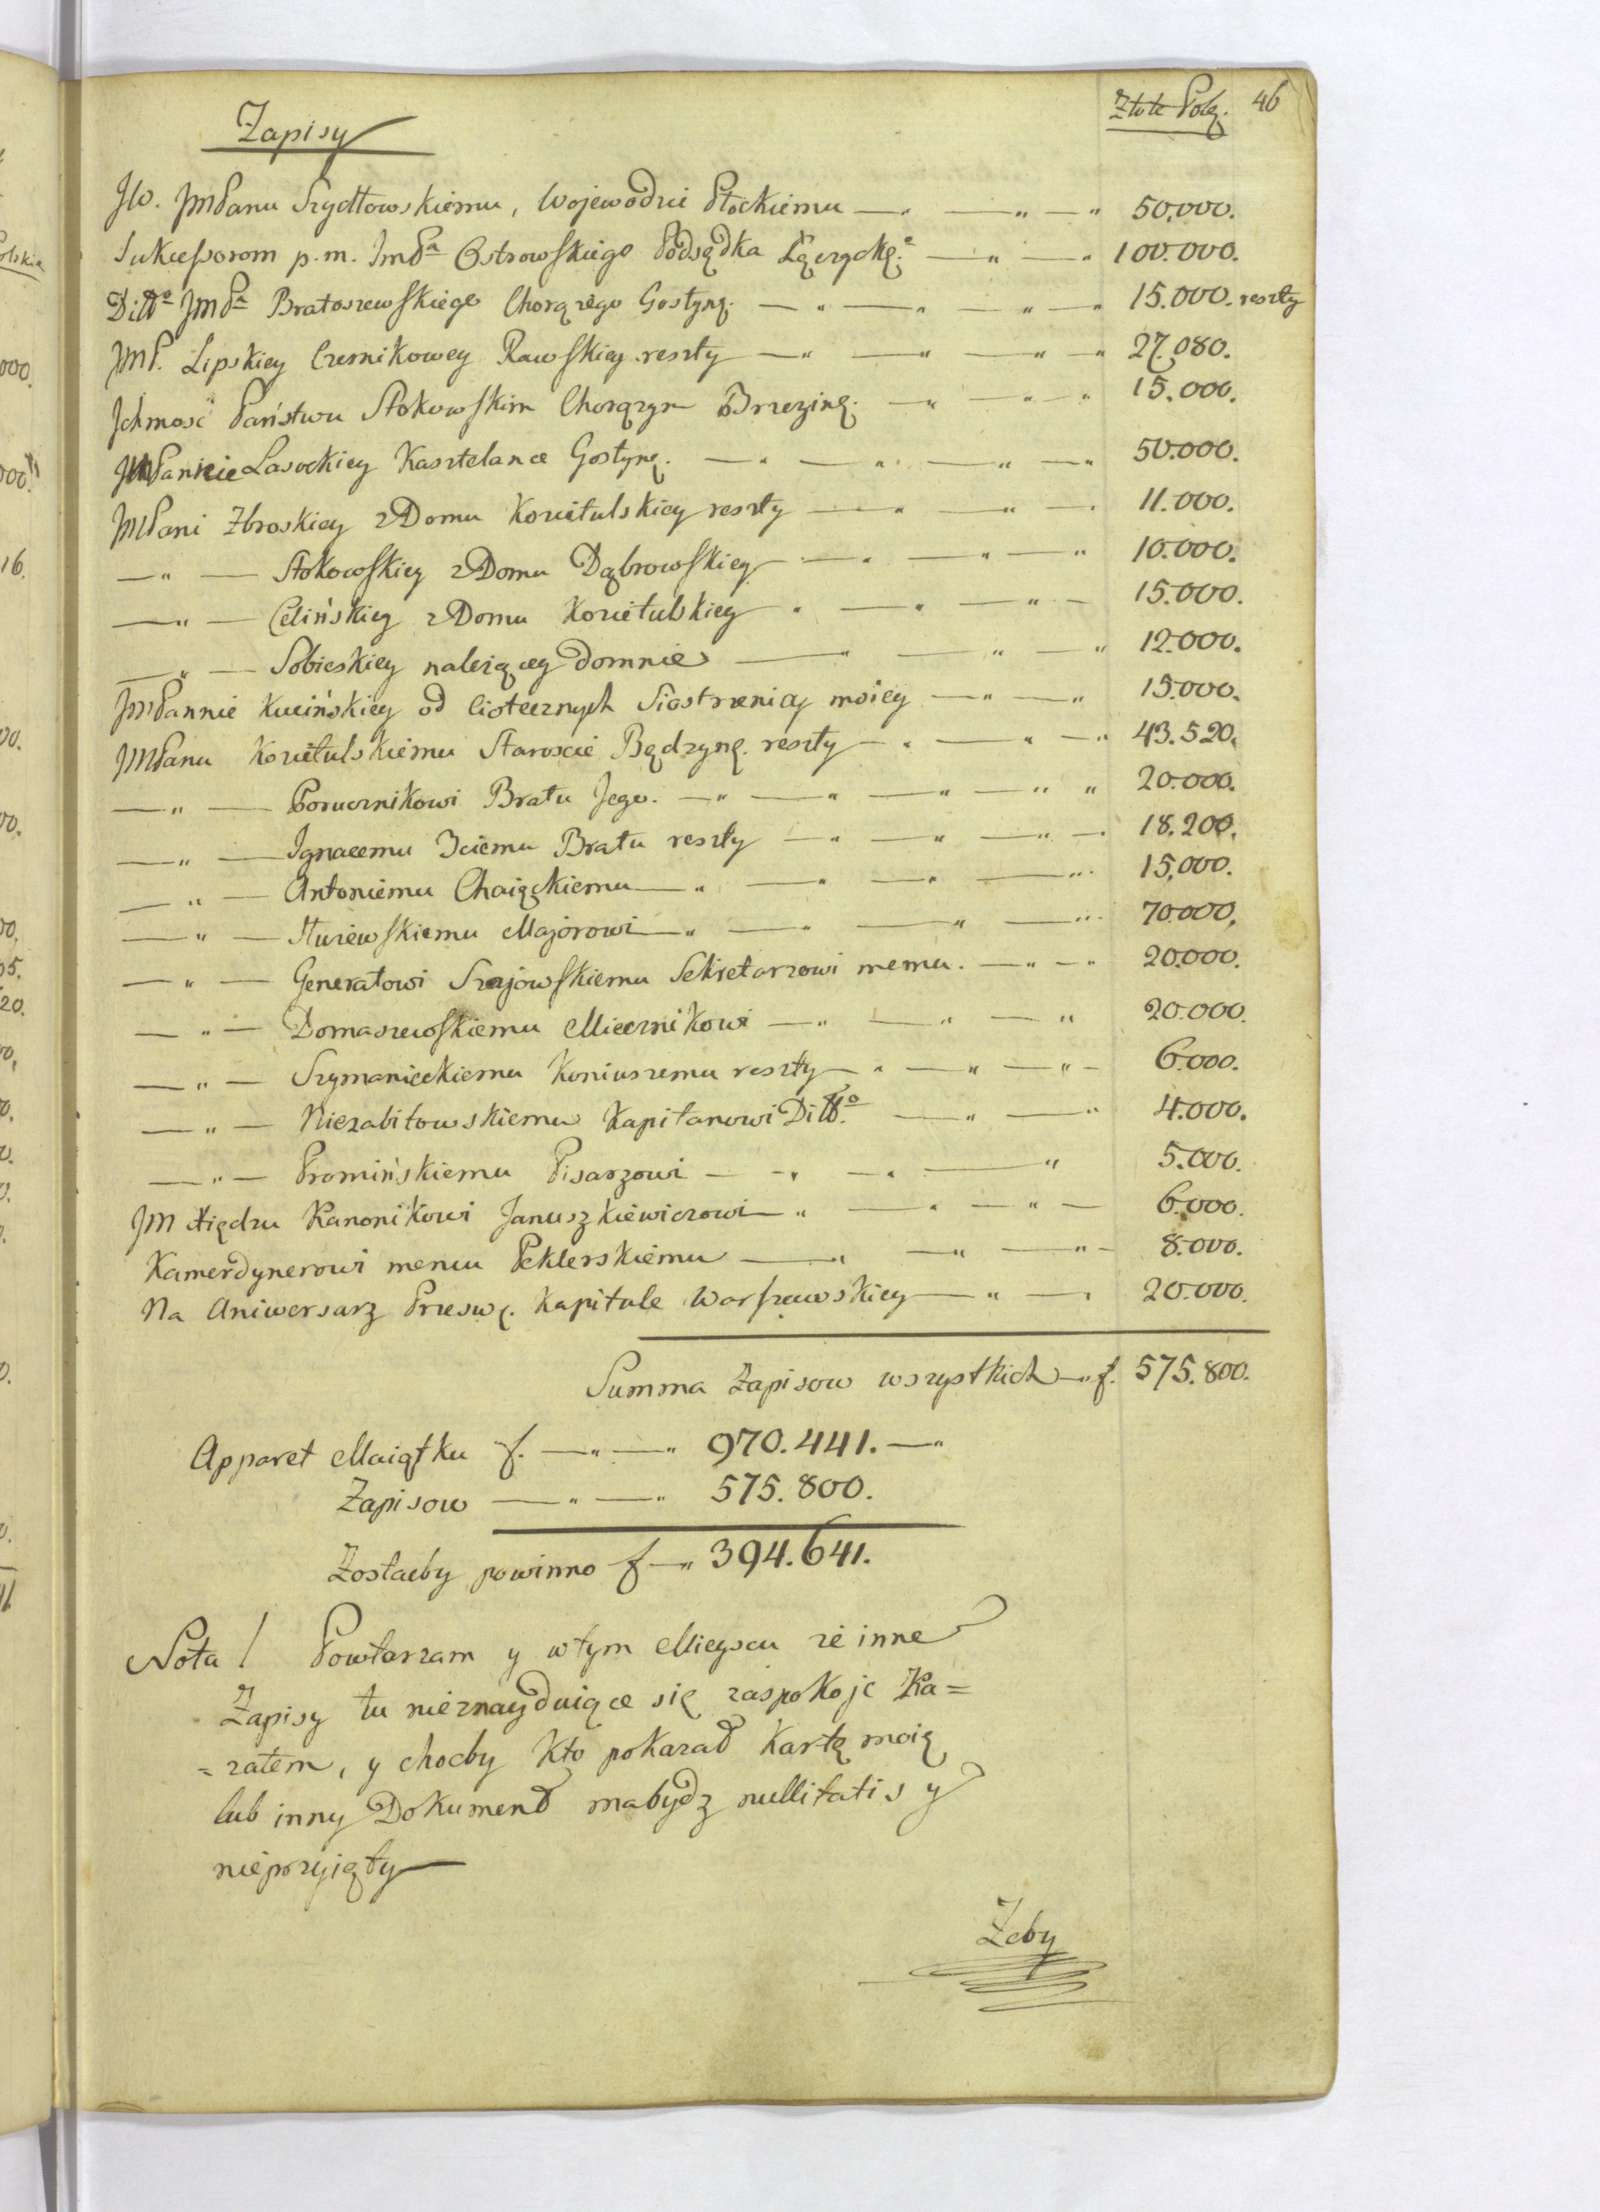 Złote Polę. 46
Zapisy
JW. JMPanu Szydłowskiemu, Wojewodzie Płockiemu — „ — „ — „ 50.000.
Sukcessorom p. m. ImPa Ostrowskiego Podsędka Łęczyckę. — „ — „ 100.000.
Ditto JMPa Bratoszewskiego Chorążego Gostynę. — „ — „ — „ — „ 15.000. reszty
JMP. Lipskiey Czesnikowey Rawskiey reszty — „ — „ — „ — „ 27.080.
Ichmość Państwu Stokowskim Chorążym Brzezinę. — „ — „ — „ 15.000.
JMPannie Lasockiey Kasztelance Gostynę. — „ — „ — „ — „ 50.000.
JMPani Zbroskiey z Domu Kozietulskiey reszty — „ — „ — „ 11.000.
— „ — Stokowskiey z Domu Dąbrowskiey — „ — „ — „ 10.000.
— „ — Celińskiey z Domu Kozietulskiey „ — „ — „ — 15.000.
— „ — Sobieskiey należącey domnie — „ — „ — „ 12.000.
JMPannie Kucińskiey od Ciotecznych Siostrzenicy moiey — „ — „ 15.000.
JMPanu Kozietulskiemu Staroscie Będzynę. reszty — „ — „ — „ 43.520.
— „ — Porucznikowi Bratu Jego. — „ — „ — „ — „ „ 20.000.
— „ — Ignacemu 3ciemu Bratu reszty — „ — „ — „ — 18.200.
— „ — Antoniemu Chaięckiemu — „ — „ — „ — „ 15,000.
— „ — Majorowi — „ — „ — „ — „ 70.000.
— „ — Generałowi Sekretarzowi memu. — „ — „ 20.000.
— „ — Domaszewskiemu Miecznikowi — „ — „ — „ 20.000.
— „ — Szymanieckiemu Koniuszemu reszty — „ — „ — „ — 6.000.
— „ — Niezabitowskiemu Kapitanowi Ditto. — „ — „ 4.000.
— „ — Promińskiemu Pisarzowi — „ — „ — „ 5.000.
JM Xiędzu Kanonikowi Januszkiewiczowi — „ — „ — „ — 6.000.
Kamerdynerowi memu Peklerskiemu — „ — „ — „ — 8.000.
Na Aniwersarz Przeswę. Kapitule Warszawskiey — „ — „ 20.000.
Summa Zapisow wszystkich — „ f. 575.800.
Apparet Maiątku f. — „ — „ 970.441. — „
Zapisow — „ — „ 575.800.
Zostaćby powinno f — „ 394.641.
Nota / Powtarzam y wtym Mieyscu że inne
Zapisy tu nieznayduiące się zaspokoje Ka=
=załem, y choćby kto pokazał Kartę moię
lub inny Dokument mabydz nullitatis y
nieprzyięty —
Żeby